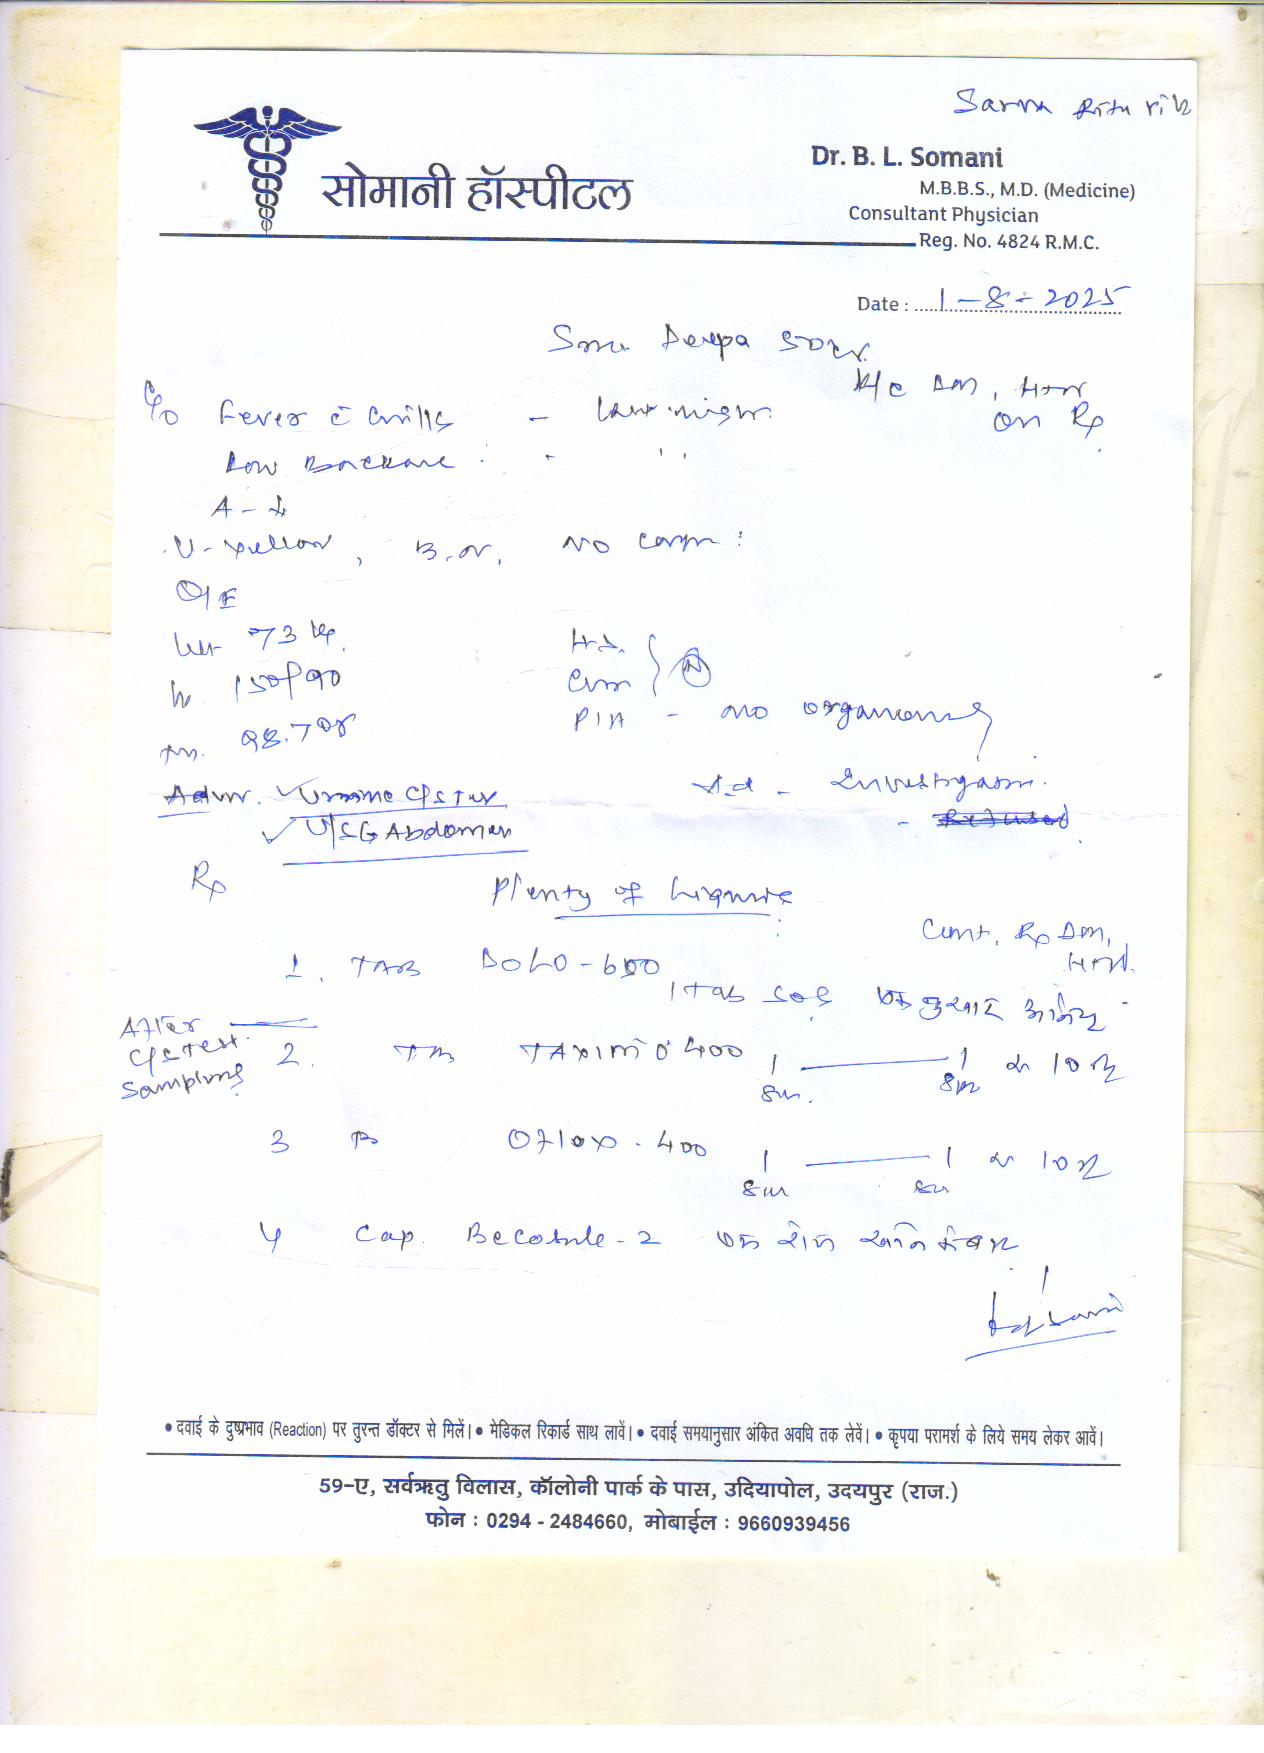 Sarva Ritu Vila
सोमानी हॉस्पीटल
Dr. B. L. Somani
M.B.B.S., M.D. (Medicine)
Consultant Physician
Reg. No. 4824 R.M.C.
Date : 1-8-2025
Smt. Deepa
K/c DM, HTN
on Rx
C/o Fever c̄ chills - last night
Low Backache - ''
A - ↓
U - Yellow, B. or, No
O/E
Wt 73 kg.
150/90
98.7 of
H.S.
CVM
N
P/A - no organomegaly
Adv. ✓ Urine C/S Test
✓ U/SG Abdomen
Ad - Investigation.
- Refused
Rx
Plenty of Liquids
Cont. Rx DM,
HTN.
1. TAB DOLO-650
1 Tab SOS एक बुखार आने पर
After
C/S Test
Sampling
2. TAXIM O 400 1 ——— 1 x 10
8 8
3 Oflox - 400 1 ——— 1 x 10
8 8
4 Cap. Becosule - 2 एक रोज
• दवाई के दुष्प्रभाव (Reaction) पर तुरन्त डॉक्टर से मिलें। • मेडिकल रिकार्ड साथ लावें। • दवाई समयानुसार अंकित अवधि तक लेवें। • कृपया परामर्श के लिये समय लेकर आवें।
59-ए, सर्वऋतु विलास, कॉलोनी पार्क के पास, उदियापोल, उदयपुर (राज.)
फोन : 0294 - 2484660, मोबाईल : 9660939456